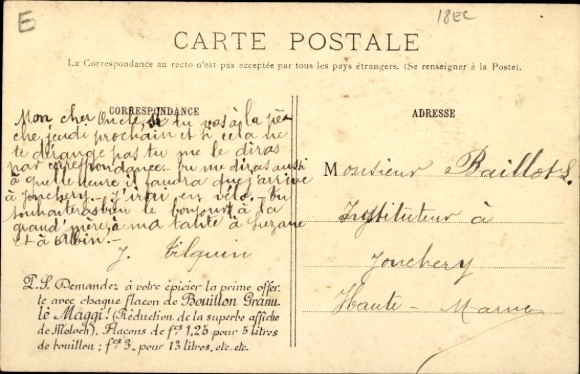 E
18EC
CARTE POSTALE
La Correspondance au recto n'est pas acceptée par tous les pays étrangers. (Se renseigner à la Poste).
CORRESPONDANCE
Mon cher Oncle, si tu vas à la pê-
che jeudi prochain et si cela ne
te dérange pas tu me le diras
par correspondance. Tu me diras aussi
à quelle heure il faudra que j'arrive
à Jonchery. J'irai en vélo. Tu
souhaiteras bien le bonjour à la
grand'mère, à ma tante à Suzane
et à Albin.
J. Tilquin
P.S. Demandez à votre épicier la prime offer-
te avec chaque flacon de Bouillon Granu-
lé Maggi! (Réduction de la superbe affiche
de Moloch). Flacons de fcs 1,25 pour 5 litres
de bouillon; fcs 3_ pour 13 litres, etc. etc.
ADRESSE
Monsieur Baillot L.
Instituteur à
Jonchery
Haute-Marne